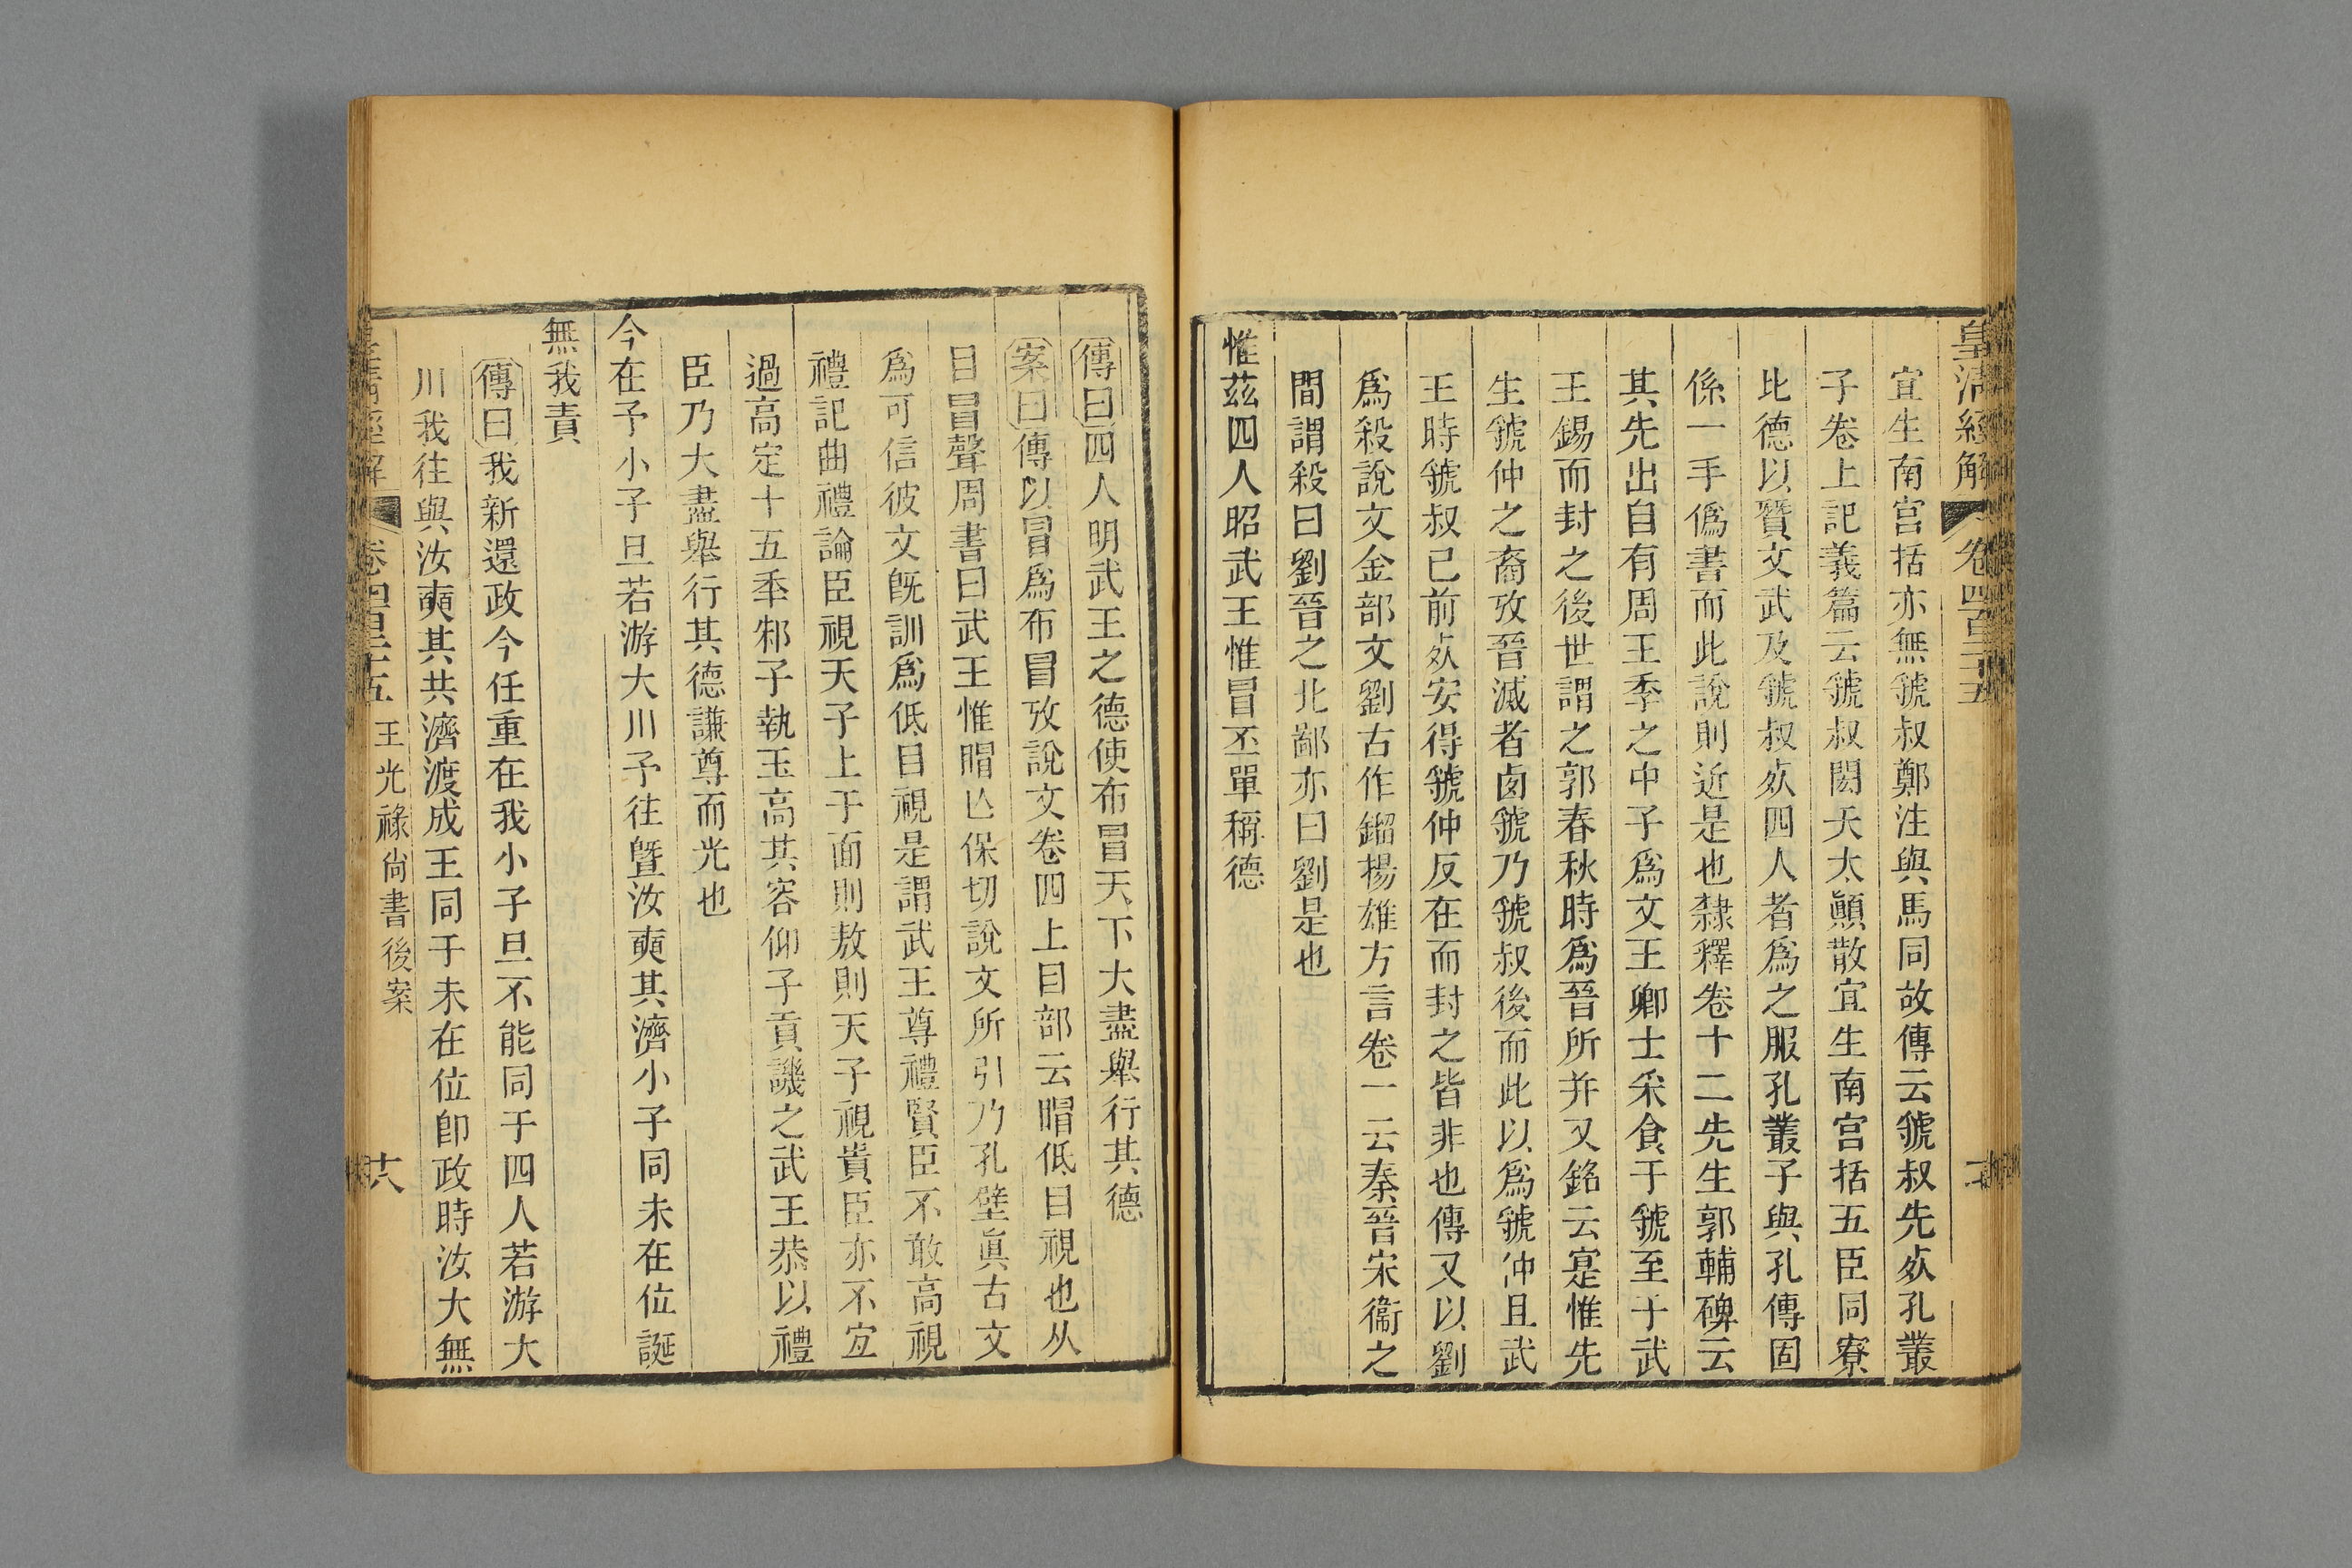 皇清經解 卷四百二十五 十七
宜生南宮括亦無虢叔鄭注與馬同故傳云虢叔先死孔叢
子卷上記義篇云虢叔閎夭太顛散宜生南宮括五臣同寮
比德以贊文武及虢叔死四人者爲之服孔叢子與孔傳固
係一手僞書而此說則近是也隸釋卷十二先生郭輔碑云
其先出自有周王季之中子爲文王卿士采食于虢至于武
王錫而封之後世謂之郭春秋時爲晉所并又銘云寔惟先
生虢仲之裔攷晉滅者卤虢乃虢叔後而此以爲虢仲且武
王時虢叔已前死安得虢仲反在而封之皆非也傳又以劉
爲殺說文金部文劉古作鎦楊雄方言卷一云秦晉宋衞之
間謂殺曰劉晉之北鄙亦曰劉是也
惟茲四人昭武王惟冒丕單稱德
傳曰四人明武王之德使布冒天下大盡舉行其德
案曰傳以冒爲布冒攷說文卷四上目部云瞑低目視也从
目冒聲周書曰武王惟瞑亾保切說文所引乃孔壁眞古文
爲可信彼文旣訓爲低目視是謂武王尊禮賢臣不敢高視
禮記曲禮論臣視天子上于面則敖則天子視貴臣亦不宜
過高定十五年邾子執玉高其容仰子貢譏之武王恭以禮
臣乃大盡舉行其德謙尊而光也
今在予小子旦若游大川予往曁汝奭其濟小子同未在位誕
無我責
傳曰我新還政今任重在我小子旦不能同于四人若游大
川我往與汝奭其共濟渡成王同于未在位卽政時汝大無
卷四百二十五 王光祿尙書後案 十八